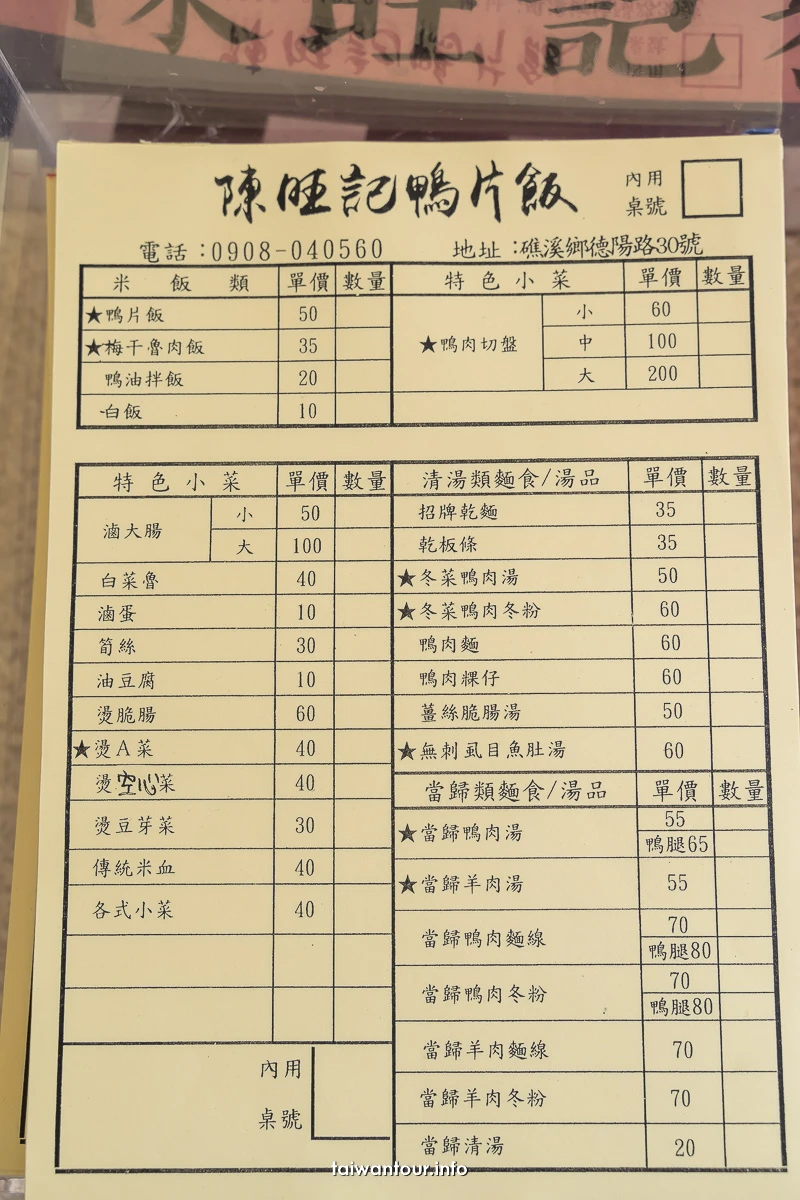 陳旺記鴨片飯
內用
桌號
電話：0908-040560 地址：礁溪鄉德陽路30號
米飯類 單價 數量
★鴨片飯 50
★梅干魯肉飯 35
鴨油拌飯 20
白飯 10
特色小菜 單價 數量
★鴨肉切盤 小 60
中 100
大 200
特色小菜 單價 數量
滷大腸 小 50
大 100
白菜魯 40
滷蛋 10
筍絲 30
油豆腐 10
燙脆腸 60
★燙A菜 40
燙空心菜 40
燙豆芽菜 30
傳統米血 40
各式小菜 40
內用
桌號
清湯類麵食/湯品 單價 數量
招牌乾麵 35
乾板條 35
★冬菜鴨肉湯 50
★冬菜鴨肉冬粉 60
鴨肉麵 60
鴨肉粿仔 60
薑絲脆腸湯 50
★無刺虱目魚肚湯 60
當歸類麵食/湯品 單價 數量
★當歸鴨肉湯 55
鴨腿65
★當歸羊肉湯 55
當歸鴨肉麵線 70
鴨腿80
當歸鴨肉冬粉 70
鴨腿80
當歸羊肉麵線 70
當歸羊肉冬粉 70
當歸清湯 20
taiwantour.info